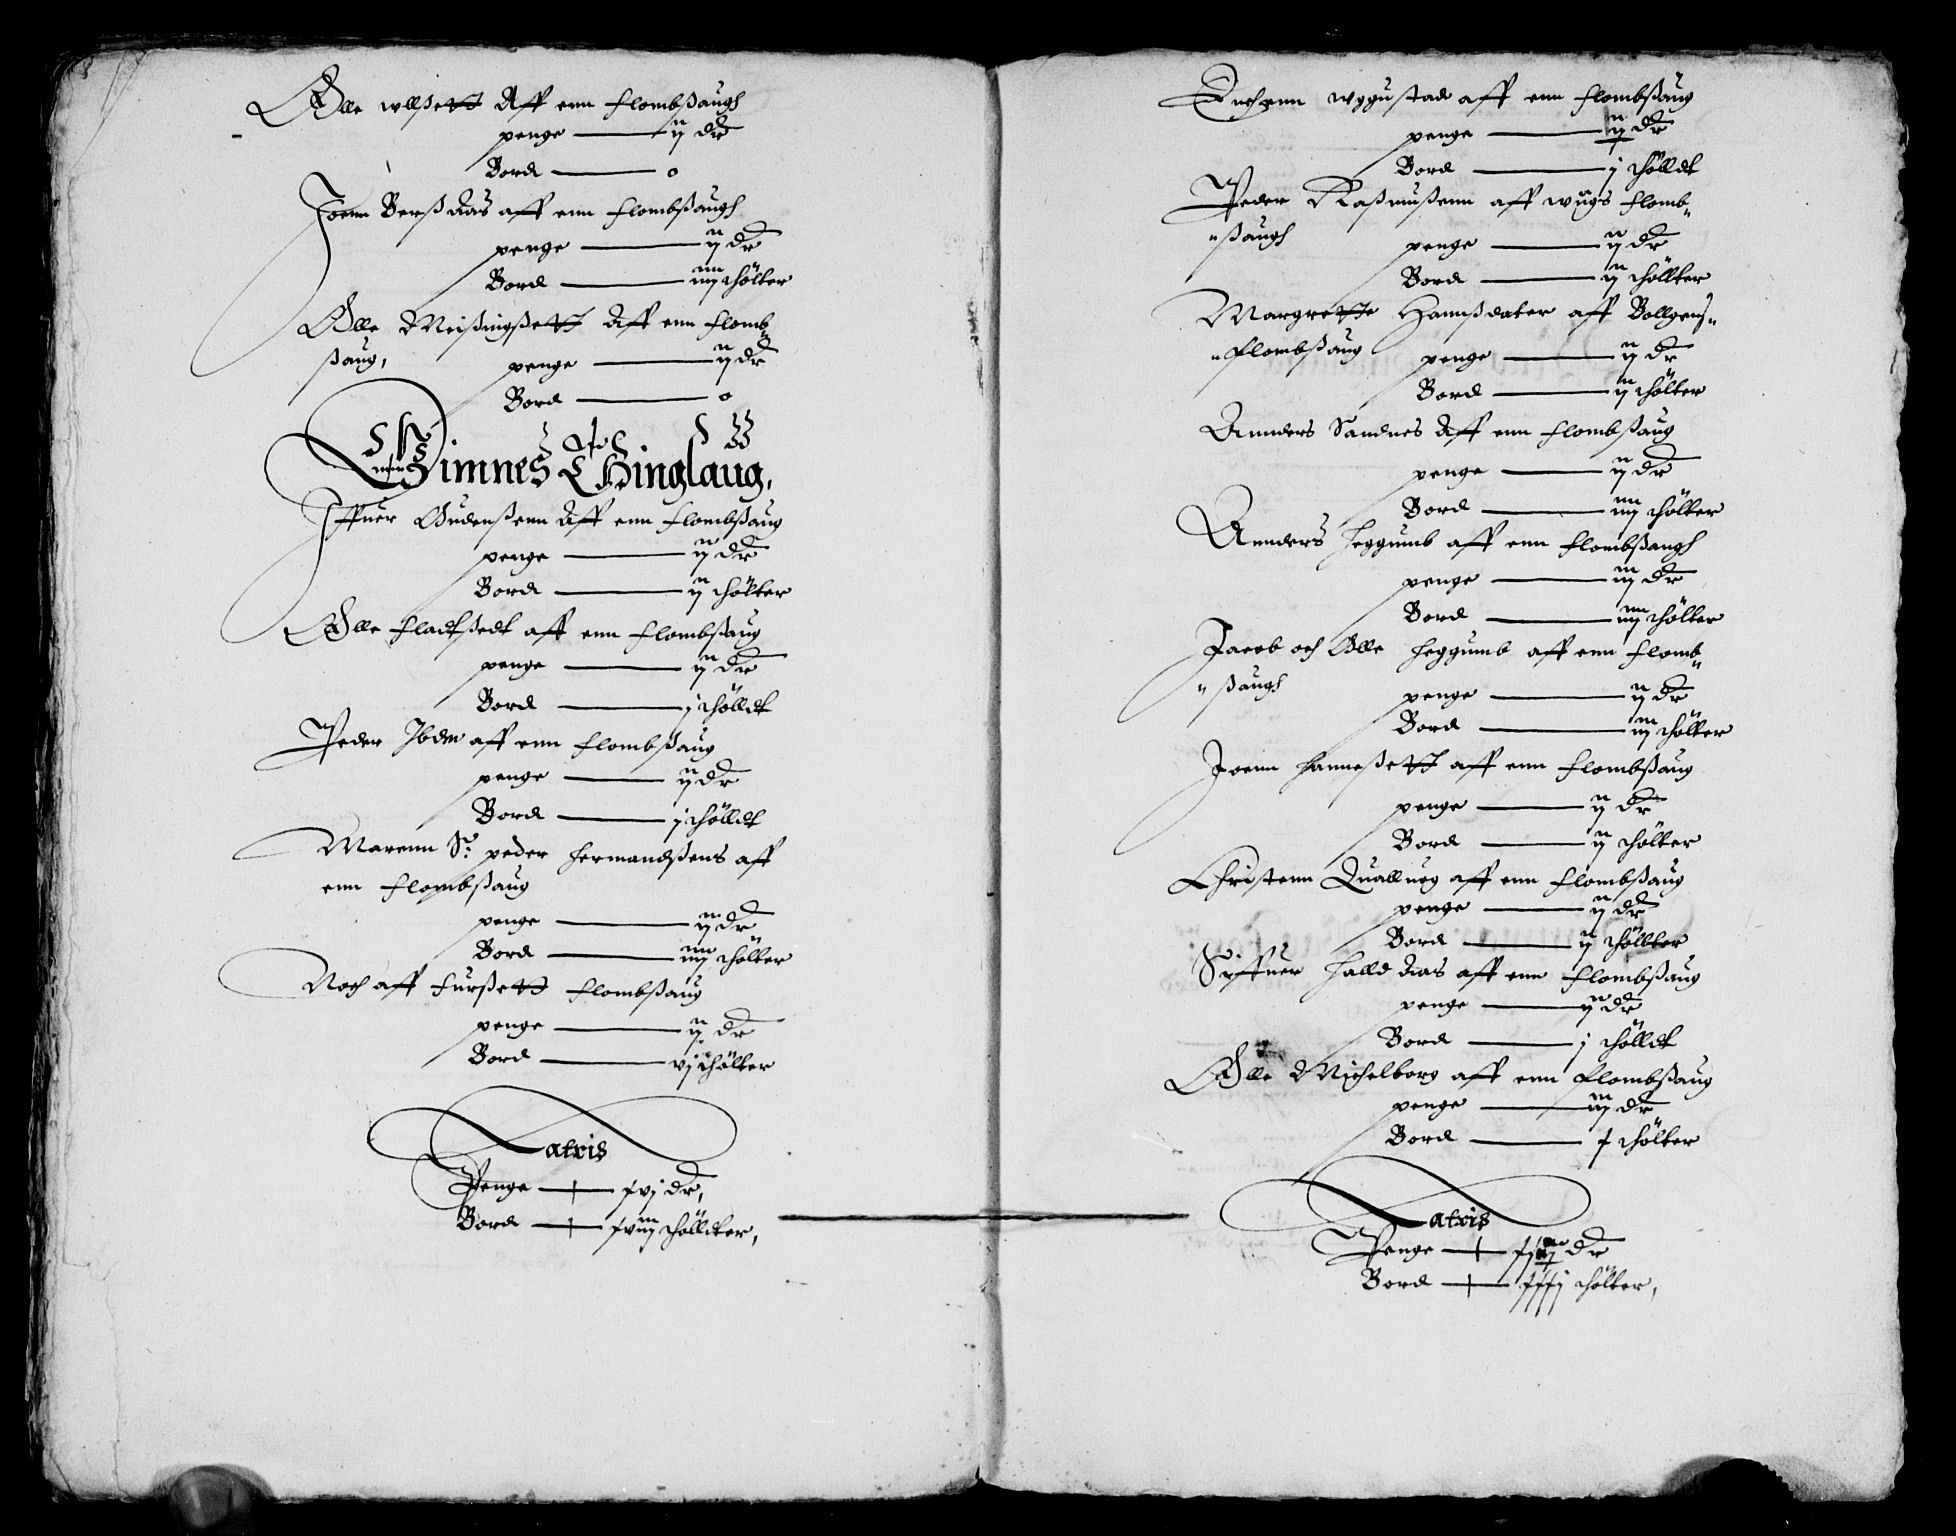 Olle wllßett Aff enn flombßaugh
penge — ij dr
Bord — o
Joenn Berßaas aff enn flombßaugh
penge — ij dr
Bord — iiij chölter
Olle Meißingßett Aff enn flomb„
ßaug, penge — ij dr
Bord — o
Gimnes Thinglaug,
Iffuer Gudenßenn Aff enn flombßaug
penge — ij dr
Bord — ij chölter
Olle fladtßedt aff enn flombßaug
penge — ij dr
Bord — j chölldt
Peder Ibdm aff enn flombßaug
penge — ij dr
Bord — j chölldt
Marenn S: peder hermandßens aff
enn flombßaug
penge — ij dr
Bord — iiij chölter
Noch aff furßett flombßaug
penge — ij dr
Bord — vj chölter
Latris
Penge — xvj dr,
Bord — xviij chölldter,
wggustad aff enn flombßaug
penge — ij dr
Bord — j chölldt
Peder Raßmußenn aff wugs flomb„
„ßaugh penge — ij dr
Bord — ij chöllter
Margrette Hannßdater aff Bollgens„
„flombßaug penge — ij dr
Bord — ij chölter
Annders Sandnes Aff enn flombßaug
penge — ij dr
Bord — iiij chölter
Annders heggumb aff enn flombßaugh
penge — iij dr
Bord — iiij chölter
Jacob och Olle heggumb aff enn flomb„
„ßaugh penge — ij dr
Bord — iij chölter
Joenn hanneßett aff enn flombßaug
penge — ij dr
Bord — ij chölter
Christenn Quallueg aff enn flombßaug
penge — ij dr
Bord — ij chöllter
Siffuer halld Aas aff enn flombßaug
penge — ij dr
Bord — j chölldt
Olle Michelborg aff enn flombßaug
penge — iij dr
Bord — x chölter
Latris
Penge — dr
Bord — xxxj chölter,